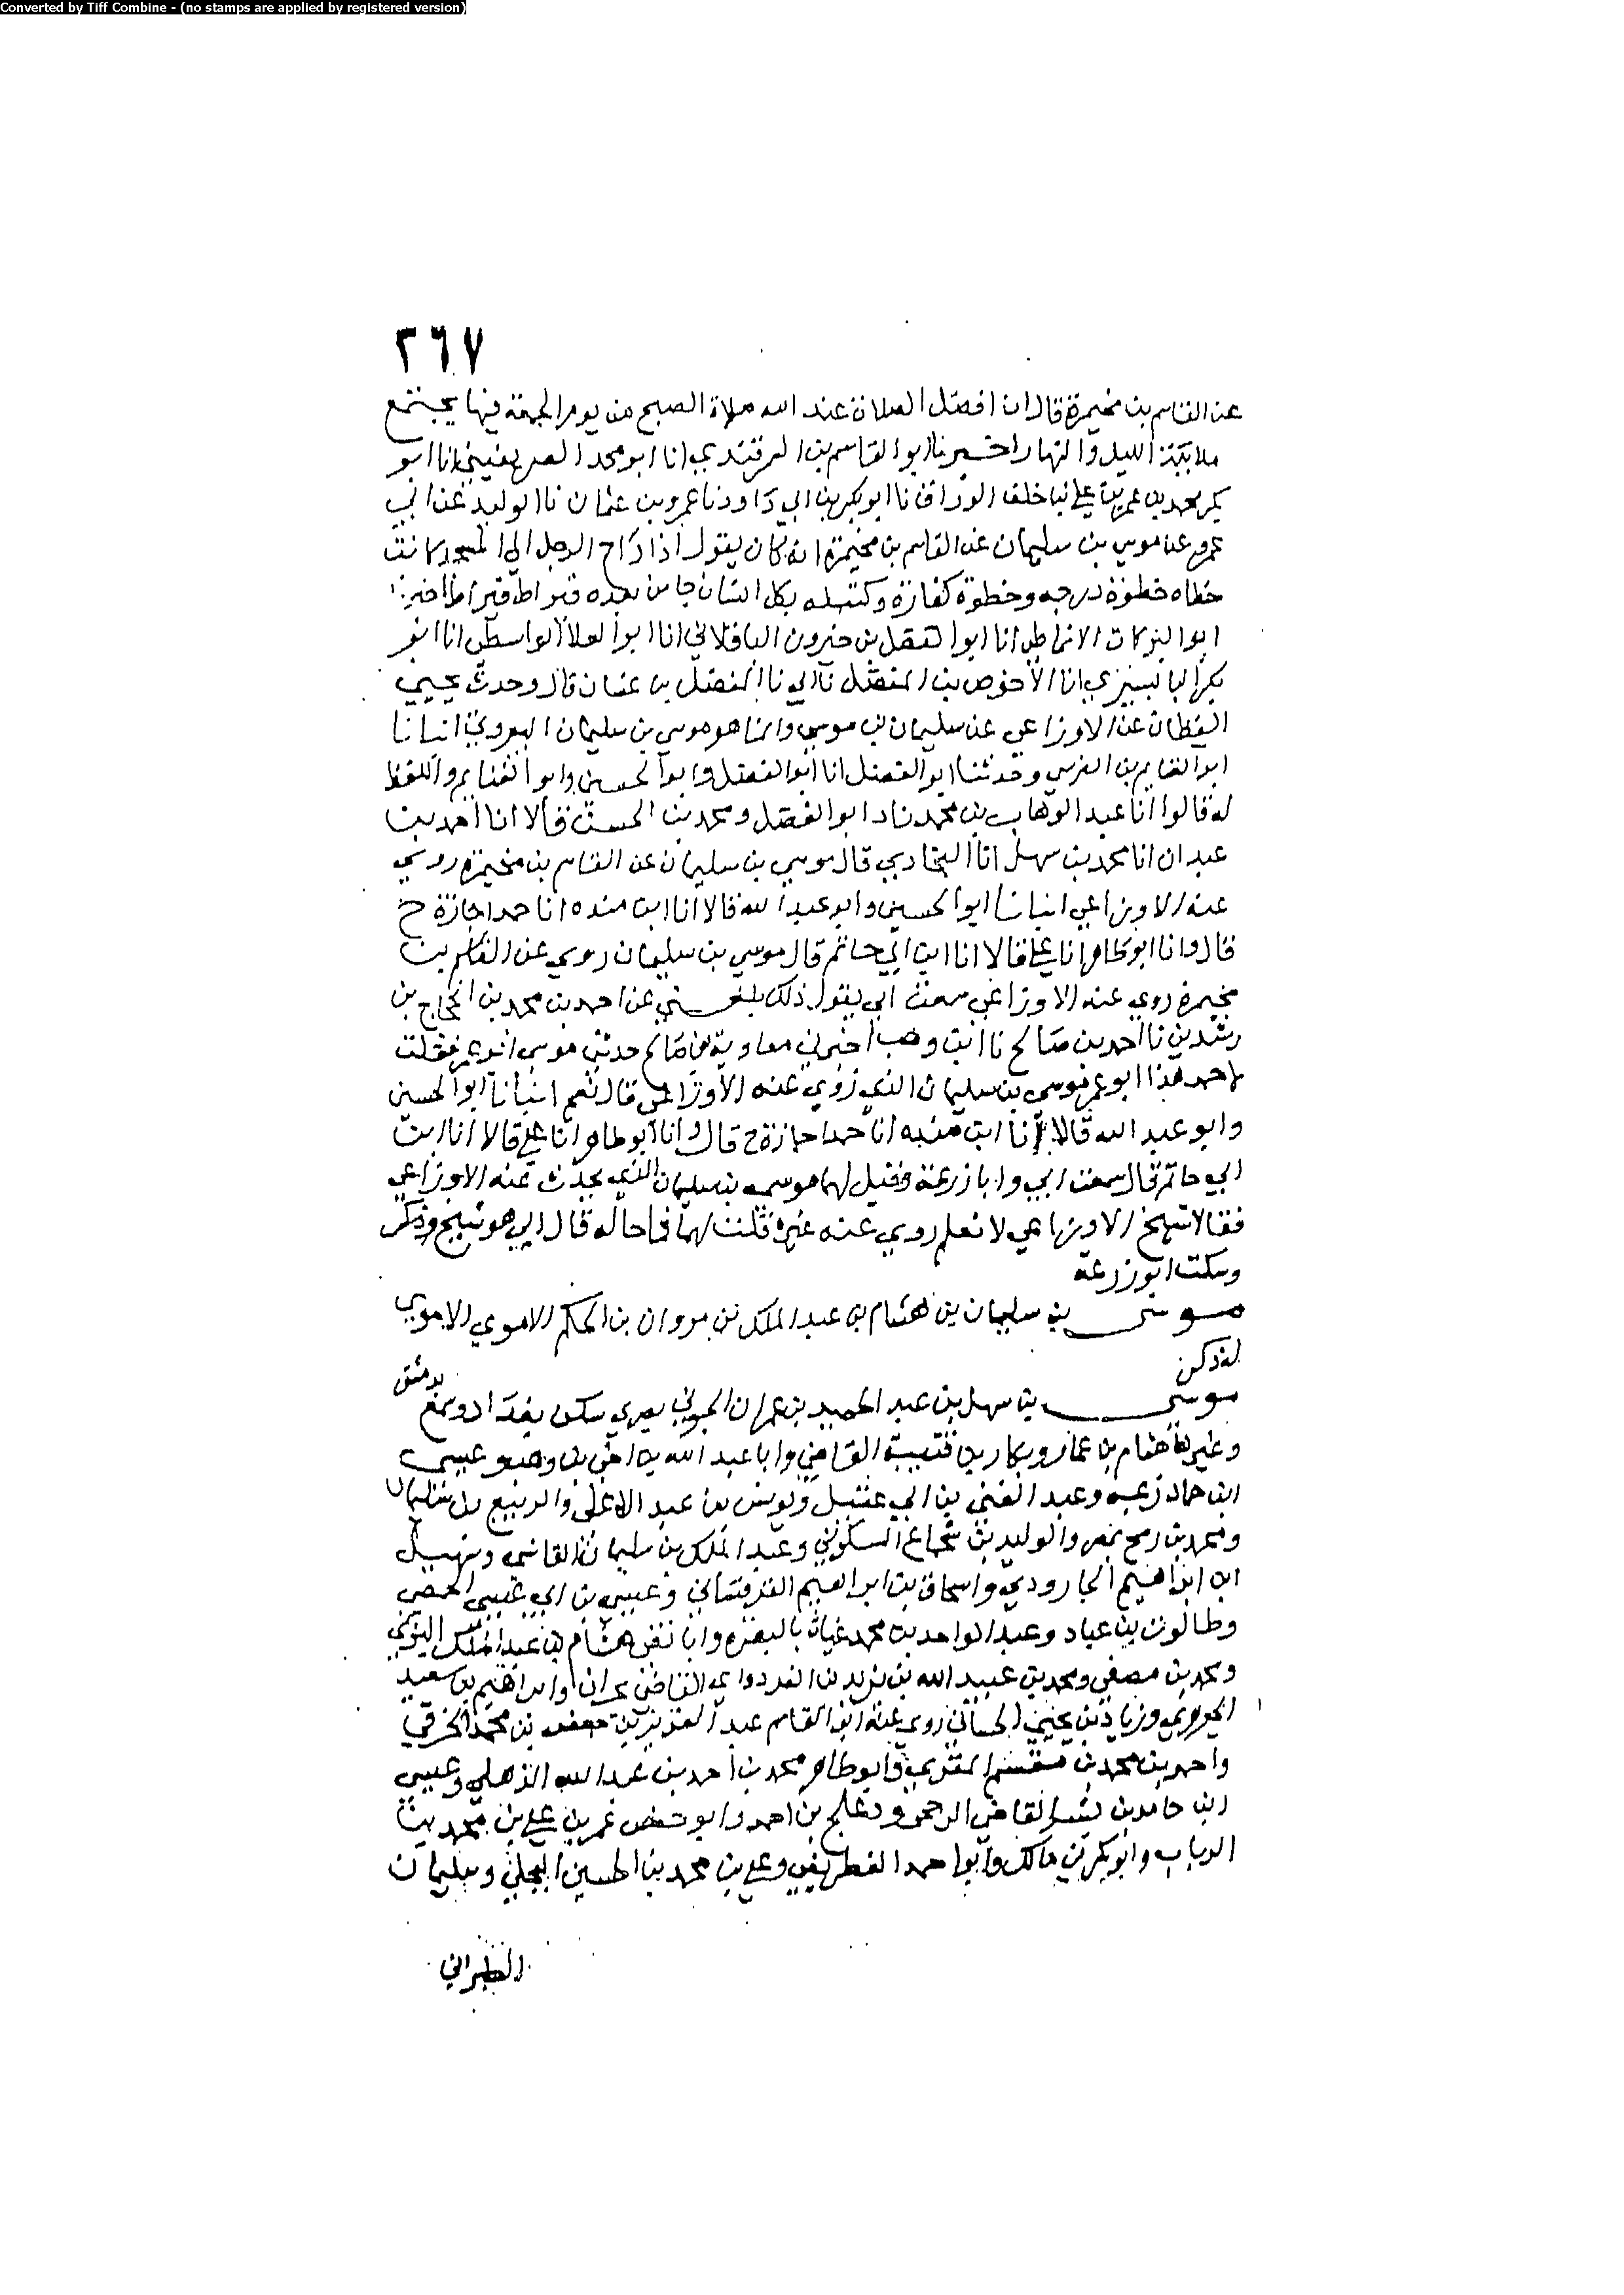 Converted by Tiff Combine - (no stamps are applied by registered version)
٢٦٧
عن القاسم بن مخيمرة قال ان افضل الصلاة عند الله صلاة الصبح من يوم الجمعة فيها يجتمع
ملائكة الليل والنهار اخبرنا ابو القاسم بن السمرقندي انا ابو محمد الصريفيني انا ابو
بكر محمد بن عمر بن علي نا خلف الوراق نا ابو بكر بن ابي داود نا عمرو بن عثمان نا الوليد عن ابي
عمرو عن موسى بن سليمان عن القاسم بن مخيمرة انه كان يقول اذا راح الرجل الى المسجد كانت
خطاه خطوة درجه وخطوة كفارة وكتب له بكل انسان جا من بعده قيراط قيراط اخبرنا
ابو البركات الانماطي انا ابو الفضل بن خيرون الباقلاني انا ابو العلا الواسطي انا ابو
بكر البابسيري انا الاحوص بن المفضل نا ابي نا المفضل بن غسان قال وحدث يحيى
القطان عن الاوزاعي عن سليمان بن موسى وانما هو موسى بن سليمان انبانا
ابو الغنايم بن النرسي وحدثنا ابو الفضل انا ابو الفضل وابو الحسين وابو الغنايم واللفظ
له قالوا انا عبد الوهاب بن محمد زاد ابو الفضل ومحمد بن الحسن قالا انا احمد بن
عبدان انا محمد بن سهل انا البخاري قال موسى بن سليمان عن القاسم بن مخيمرة روى
عنه الاوزاعي انبانا ابو الحسين وابو عبد الله قالا انا ابن منده انا حمد اجازة ح
قال وانا ابو طاهر انا علي قالا انا ابن ابي حاتم قال موسى بن سليمان روى عن القاسم بن
مخيمرة روى عنه الاوزاعي سمعت ابي يقول ذلك بلغني عن احمد بن محمد بن الحجاج بن
رشدين نا احمد بن صالح نا ابن وهب اخبرني معاوية بن صالح حدثني موسى ابو عمر فقلت
لاحمد هذا ابو عمر موسى بن سليمان الذي روى عنه الاوزاعي قال نعم انبانا ابو الحسين
وابو عبد الله قالا انا ابن منده انا حمد اجازة ح قال وانا ابو طاهر انا علي قالا انا ابن
ابي حاتم قال سمعت ابي وابا زرعة وقيل لهما موسى بن سليمان الذي يحدث عنه الاوزاعي
فقالا شيخ الاوزاعي لا نعلم روى عنه غيره قلت لهما فما حاله قال ابي هو شيخ وذكر
وسكت ابو زرعة
موسى بن سليمان بن هشام بن عبد الملك بن مروان بن الحكم الاموي الاموي
له ذكر
موسى بن سهل بن عبد الحميد بن عمران الجوني بصري سكن بغداد وسمع بدمشق
وغيرها هشام بن عمار وبكار بن قتيبة القاضي وابا عبد الله بن اخي بن وهب وعيسى
ابن حماد زغبه وعبد الغني بن ابي عقيل ويونس بن عبد الاعلى والربيع بن سليمان
ومحمد بن رمح بمصر والوليد بن شجاع السكوني وعبد الملك بن سليمان القاضي وسهيل
ابن ابراهيم الجارودي واسحاق بن ابراهيم القرقساني وعيسى بن ابي عيسى الحمصي
وطالوت بن عباد وعبد الواحد بن محمد غياث بالبصرة وابا تقي هشام بن عبد الملك اليزني
ومحمد بن مصفى ومحمد بن عبيد الله بن يزيد بن القردواني القاضي بحران وابراهيم بن سعيد
الجوهري وزياد بن يحيى الحساني روى عنه ابو القاسم عبد العزيز بن جعفر بن محمد الخرقي
واحمد بن محمد بن مقسم المقري وابو طاهر محمد بن احمد بن عبد الله الذهلي وعيسى
ابن حامد بن بشر القاضي الرخجي ودعلج بن احمد وابو حفص عمر بن علي بن محمد بن
الرياب وابو بكر بن مالك وابو احمد الغطريفي وعلي بن محمد بن الحسين البجلي وسليمان
الطبراني